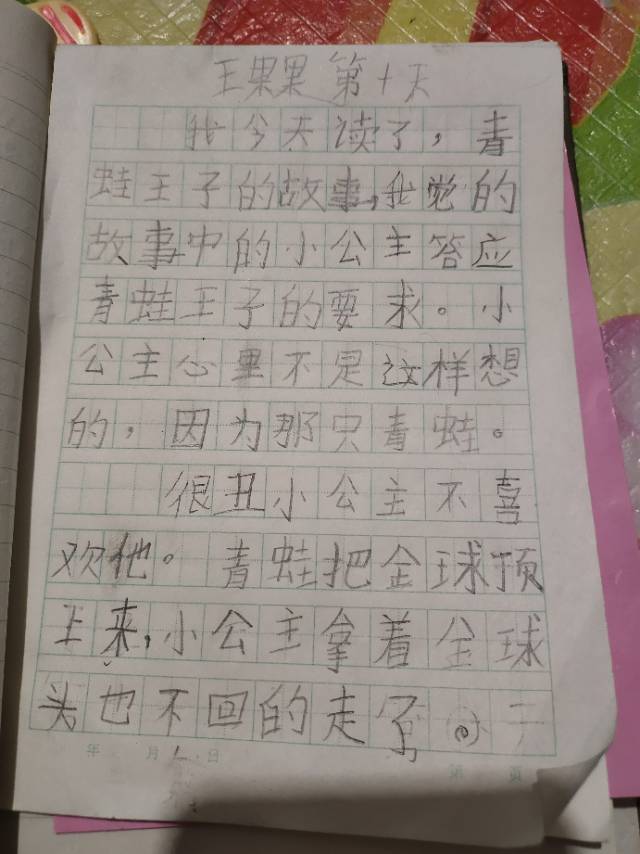 王果果 第十天
我今天读了，青
蛙王子的故事,我觉的
故事中的小公主答应
青蛙王子的要求。小
公主心里不是这样想
的，因为那只青蛙。
很丑小公主不喜
欢他。青蛙把金球顶
上来,小公主拿着金球
头也不回的走了。
年 月 日
第 页